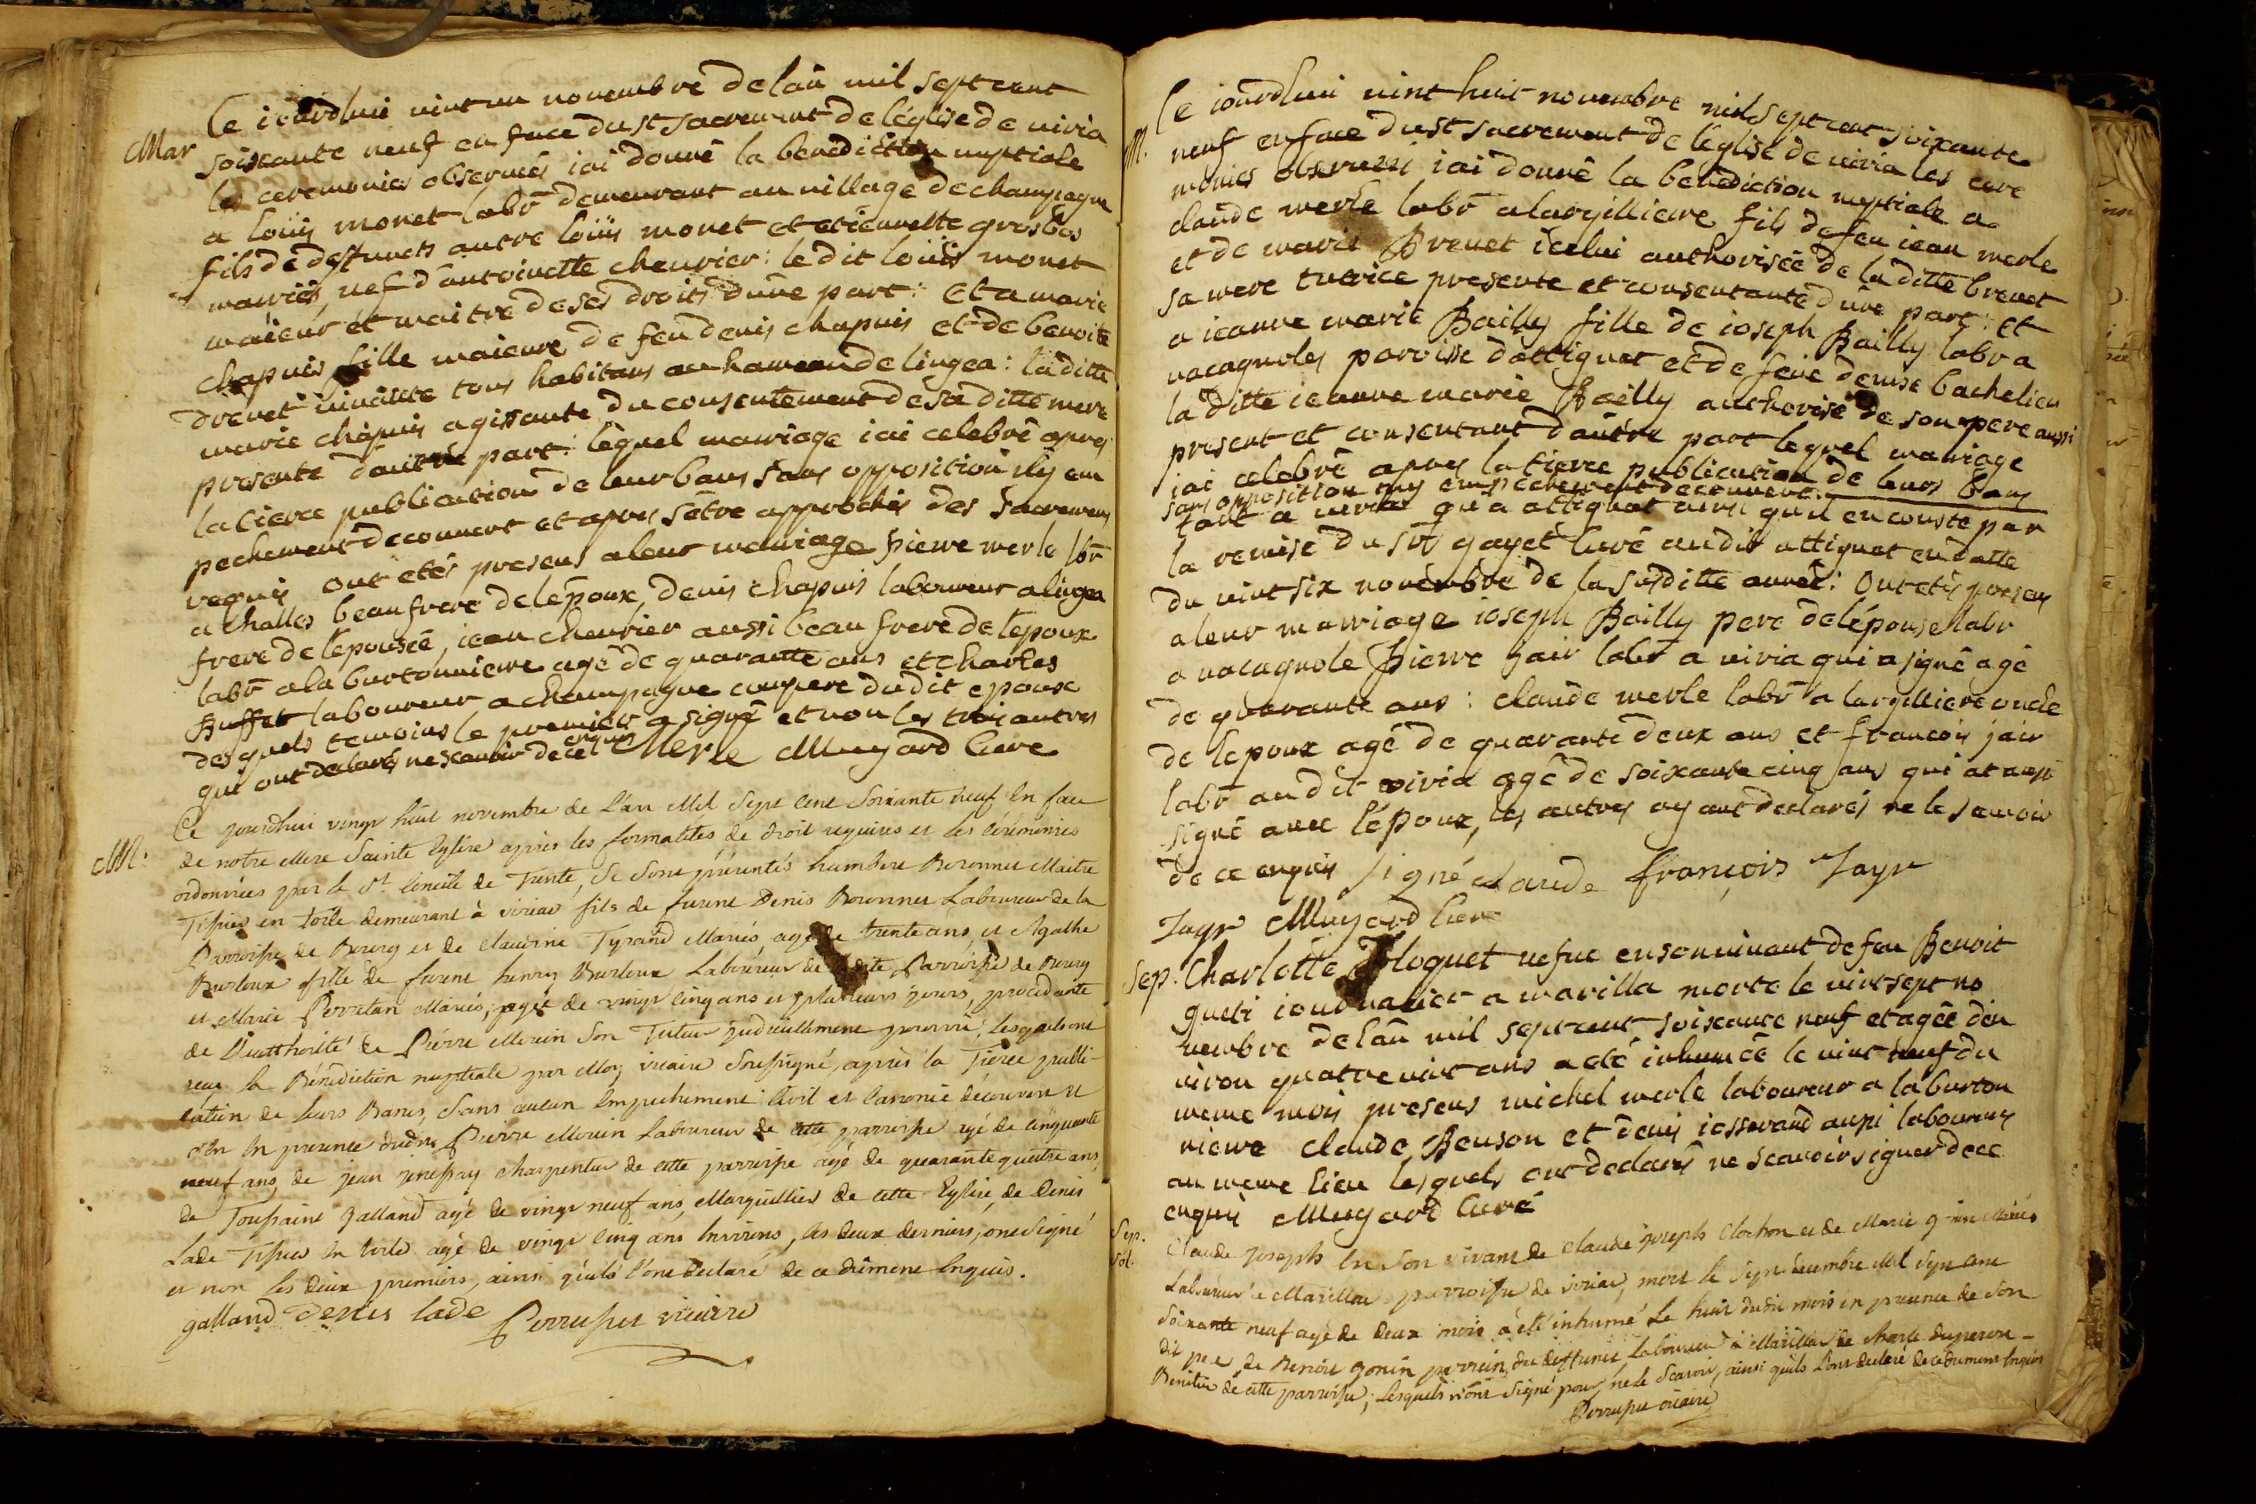 Mar
Ce iourdhui vint un novembre de lan mil sept cent
soissante neuf en face du st sacrement de léglise de viria
les ceremonies observées iai donné la benediction nuptiale
a loüis monet labr demeurant au village de champagne
fils de deffuncts autre loüis monet et etiennette grosbos
mariés, vef dantoinette cheurier: le dit loüis monet
maieur et maitre de ses droits dune part: Et a marie
chapuis fille maieure de feu denis chapuis et de benoite
drevet vivante tous habitans au hameau de lingea: la ditte
marie chapuis agissante du consentement de sa ditte mere
presente dautre part: lequel mariage iai celebré apres
la tierce publication de leur bans sans opposition ny em
pechement decouvert et apres sétre approchés des sacremens
requis ont etés presens a leur mariage pierre merle labr
a challes beaufrere de lépoux, denis chapuis laboureur a lingea
frere de lépousée, iean cheurier aussi beau frere de lepoux
labr a la burtonniere agé de quarante ans et charles
Buffet laboureur a champagne compere dudit epoux
desquels temoins le premier a signé et non les trois autres
qui ont declarés ne scavoir de ce enquis Merle Muyard Curé
M.
Ce jourdhui vingt huit novembre de l'an Mil Sept Cent Soixante neuf En face
de notre Mere Sainte Eglise après les formalites de droit requises et les Cérémonies
ordonnées par le St Concile de Trente, Se Sont présentés humbert Boronnet Maitre
Tissier en toile demeurant à viriat fils de furent Denis Boronnet Laboureur de la
Parroisse de Bourg et de Claudine Tyrand Mariés, agé de trente ans, et Agathe
Burloux fille de furent henry Burloux Laboureur de dite Parroisse de Bourg
et Marie Perretan Mariés; agée de vingt cinq ans et plusieurs jours, procédante
de l'authorité de Pierre Morin Son Tuteur judiciellement pourvu, Lesquels ont
reçu la Bénédiction nuptiale par Moy vicaire Soussigné, après la Tierce publi-
cation de leurs Bans, Sans aucun Empechement Civil et Canonic découvert et
En presence dudit Pierre Morin Laboureur de cette parroisse agé de cinquante
neuf ans, de jean charpentier de cette parroisse agé de quarante quatre ans,
de Toussaint Galland agé de vingt neuf ans, Marguillier de cette Eglise, de Denis
Lade Tissier En toile agé de vingt cinq ans Environs, les deux derniers, ont Signé
et non les deux premiers, ainsi qu'ils l'ont Declaré de ce dûment Enquis.
galland denis lade Perruset vicaire
M.
Ce iourdhui vint huit novembre mil sept cent soixante
neuf en face du st sacrement de léglise de viria les cere
monies observées iai donné la benediction nuptiale a
claude merle labr a largilliere fils de feu iean merle
et de marie Brevet icelui authorisée de la ditte brevet
sa mere tutrice presente et consentante dune part: et
a ieanne marie Bailly fille de ioseph Bailly labr a
vacagnoles paroisse dattignat et de feüe denise bachelieu
la ditte ieanne marie Bailly authorisé de son pere aussi
present et consentant dautre part lequel mariage
iai celebré apres la tierce publication de leurs bans
sans opposition ny empechement decouvert
tant a viria qu'a attignat ainsi quil en conste par
la remise du sr gayet curé audit attignat en datte
du vint six novembre de la susditte année: Ont etés presens
a leur mariage ioseph Bailly pere de lépouse labr
a vacagnole pierre jair labr a viria qui a signé agé
de quarante ans: claude merle labr a largilliere oncle
de lepoux agé de quarante deux ans et francois jair
labr au dit viria agé de soixante cinq ans qui at aussi
signé avec lépoux, les autres ayant declarés ne le scavoir
de ce enquis signé claude françois Jayr
Jayr Muyard Curé
Sep.
Charlotte Bloquet vefue en son vivant de feu Benoit
gueti iournalier a marilla morte le vint sept no
vembre de lan mil sept cent soissante neuf et agée den
viron quatre vint ans a eté inhumée le vint neuf du
meme mois presens michel merle laboureur a la burton
niere claude Benson et denis iosserand aussi laboureurs
au meme lieu lesquels ont declarés ne scavoir signer de ce
enquis Muyard Curé
Sep.
Sol.
Claude Joseph En Son vivant de Claude joseph Clochon et de Marie Mariés
Laboureur a Marillat parroisse de viriat, mort le Sept decembre Mil Sept Cent
Soixante neuf agé de deux mois à été inhumé Le huit dudit mois en presence de Son
dit pere de Benoit Gonin parrein du deffunct Laboureur à Marillat de charle duperon-
Benetier de cette parroisse; Lesquels n'ont Signé pour ne le Scavoir, ainsi qu'ils L'ont declaré de ce dûment Enquis
Perruset vicaire